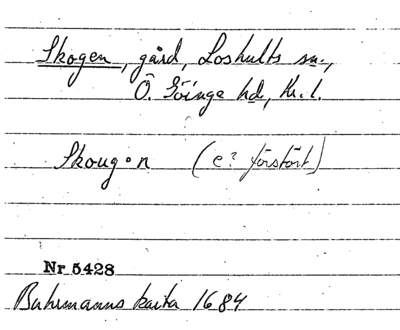 Skogen, gård, Loshults sn.,
Ö. Göinge hd, Kr. l.
Skougon (e? förstört)
Nr 5428
Buhrmanns karta 1684